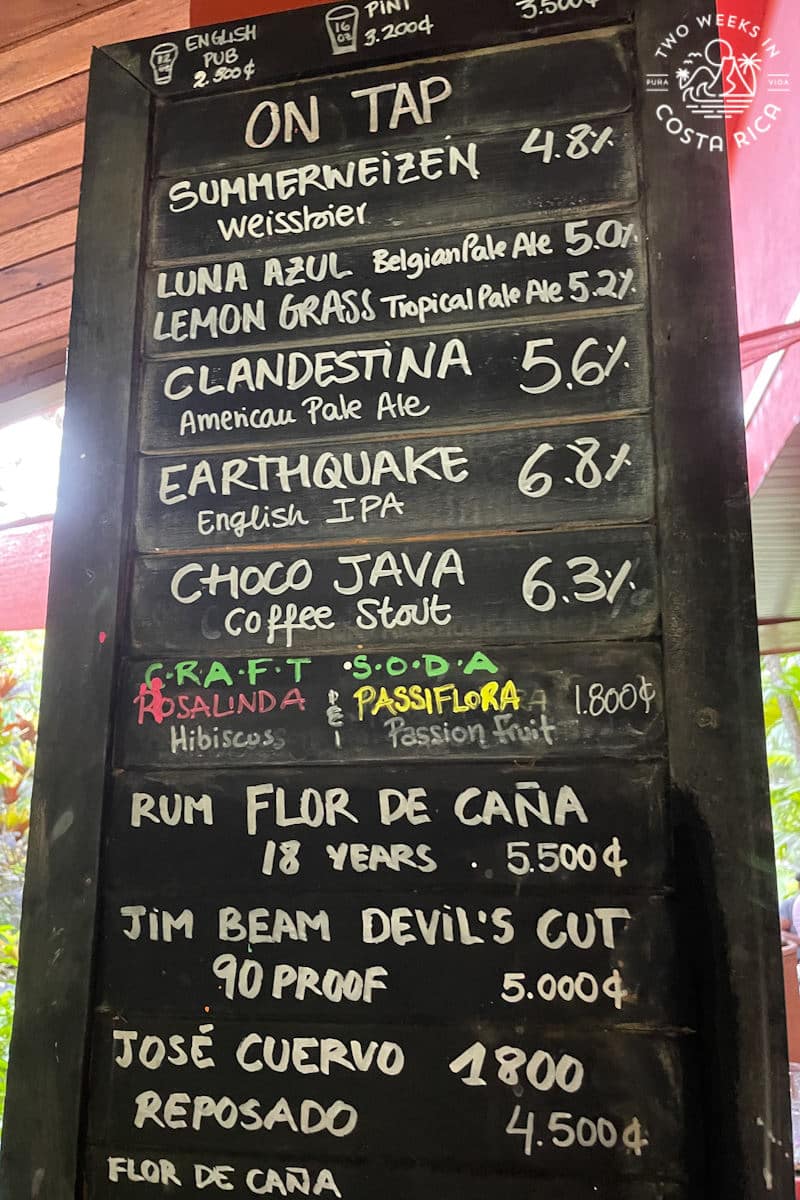 ENGLISH PUB 2.500₡
16 oz PINT 3.200₡
3.500₡
TWO WEEKS IN
PURA VIDA
COSTA RICA
ON TAP
SUMMERWEIZEN 4.8%
Weissbier
LUNA AZUL Belgian Pale Ale 5.0%
LEMON GRASS Tropical Pale Ale 5.2%
CLANDESTINA 5.6%
American Pale Ale
EARTHQUAKE 6.8%
English IPA
CHOCO JAVA 6.3%
Coffee Stout
C·R·A·F·T ·S·O·D·A
ROSALINDA PASSIFLORA 1.800₡
Hibiscus Passion fruit
RUM FLOR DE CAÑA
18 YEARS . 5.500₡
JIM BEAM DEVIL'S CUT
90 PROOF 5.000₡
JOSÉ CUERVO 1800
REPOSADO 4.500₡
FLOR DE CAÑA